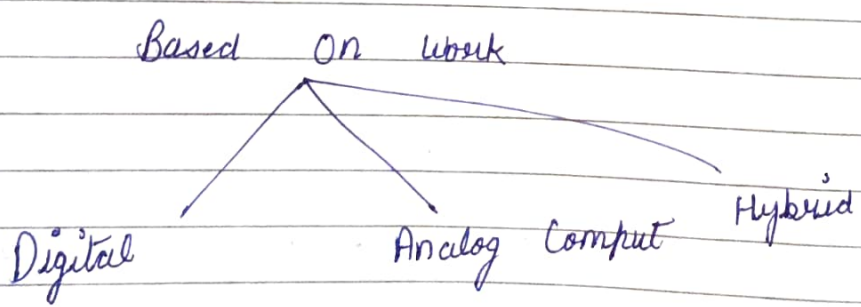 Based On Work
Digital Analog Comput Hybrid